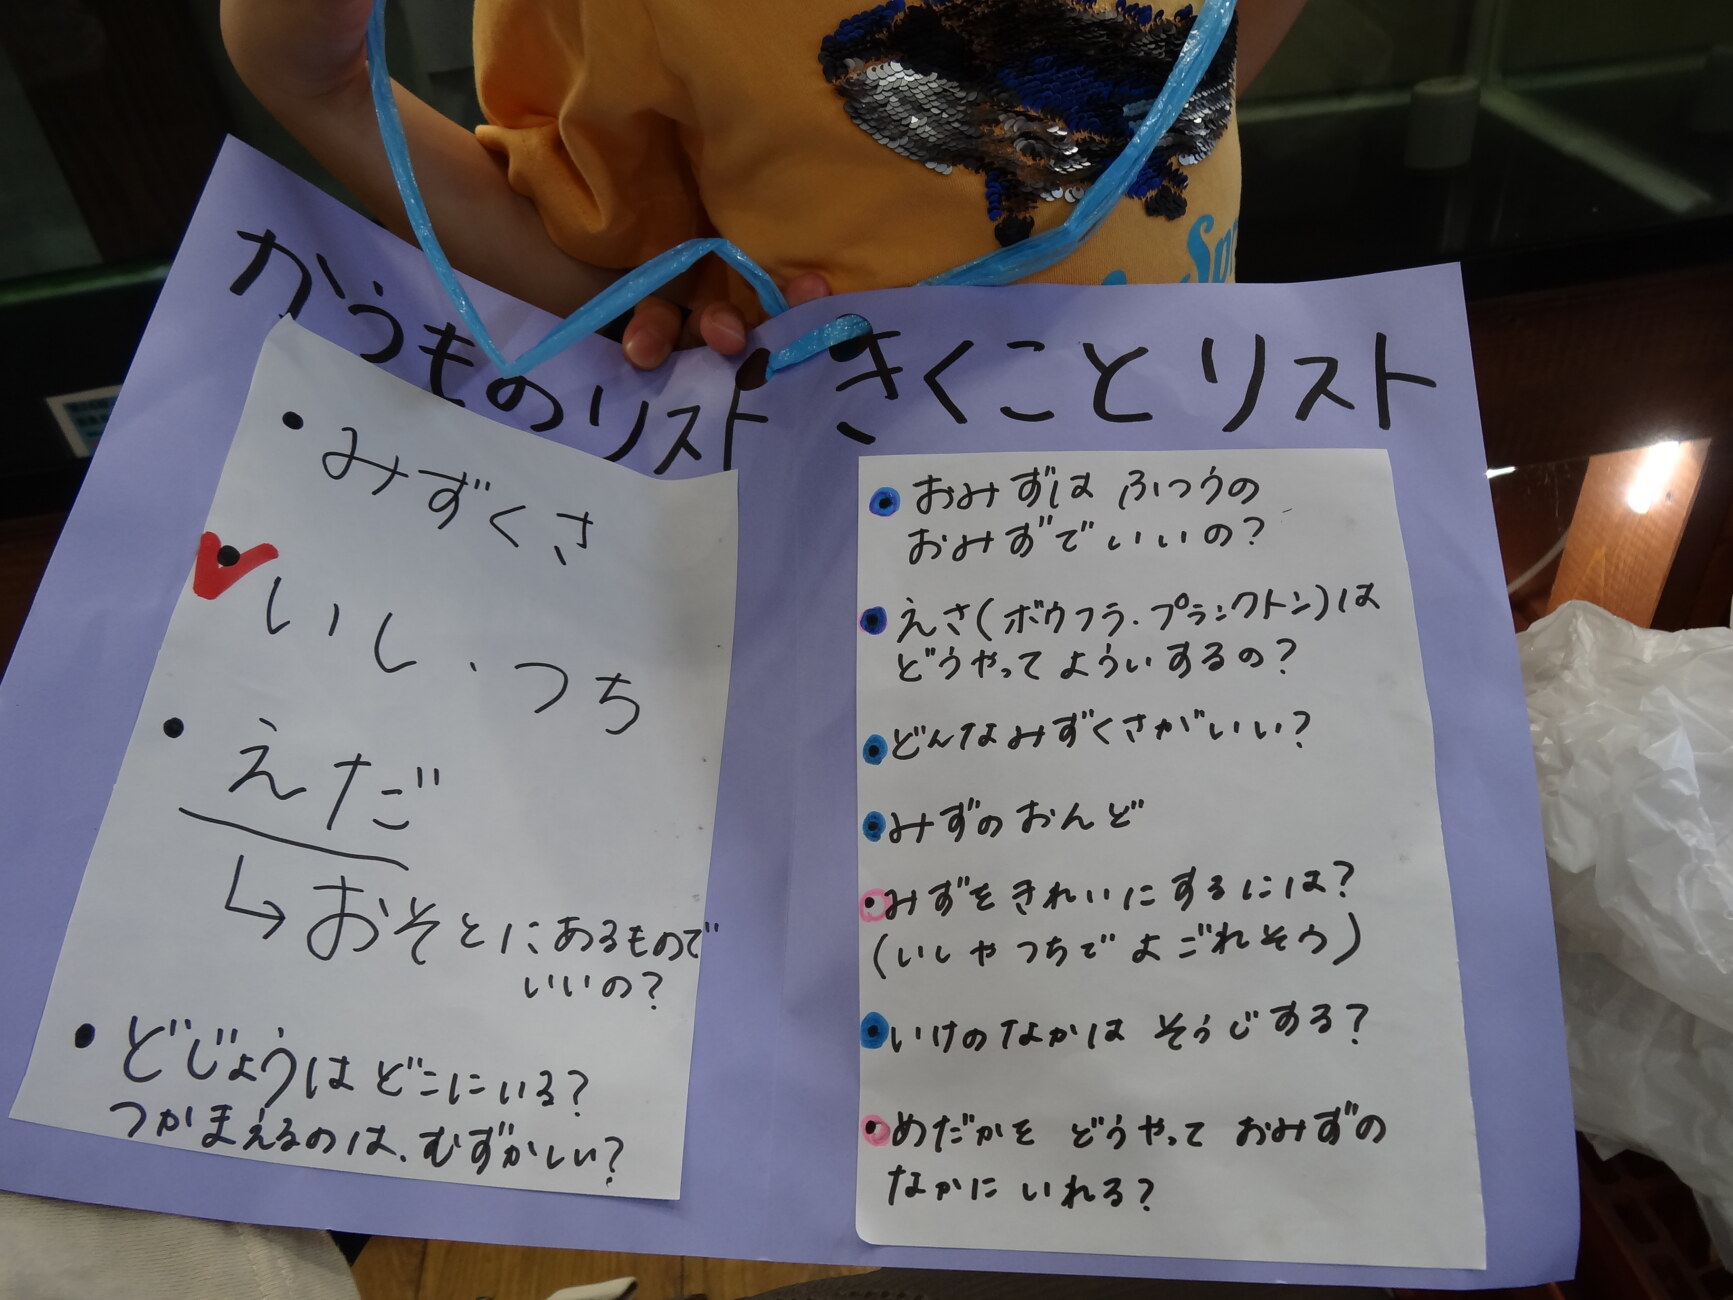 かうものリスト
・みずくさ
・いし・つち
・えだ
↳おそとにあるもので
いいの?
・どじょうはどこにいる?
つかまえるのは、むずかしい?
きくことリスト
・おみずは ふつうの
おみずでいいの?
・えさ(ボウフラ・プランクトン)は
どうやってよういするの?
・どんなみずくさがいい?
・みずのおんど
・みずをきれいにするには?
(いしやつちでよごれそう)
・いけのなかは そうじする?
・めだかを どうやって おみずの
なかに いれる?